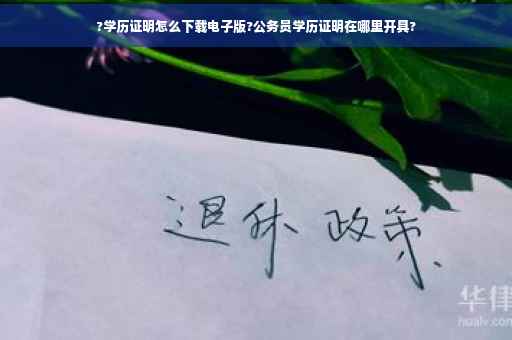 ?学历证明怎么下载电子版?公务员学历证明在哪里开具?
退休 政策
华律
hualv.com